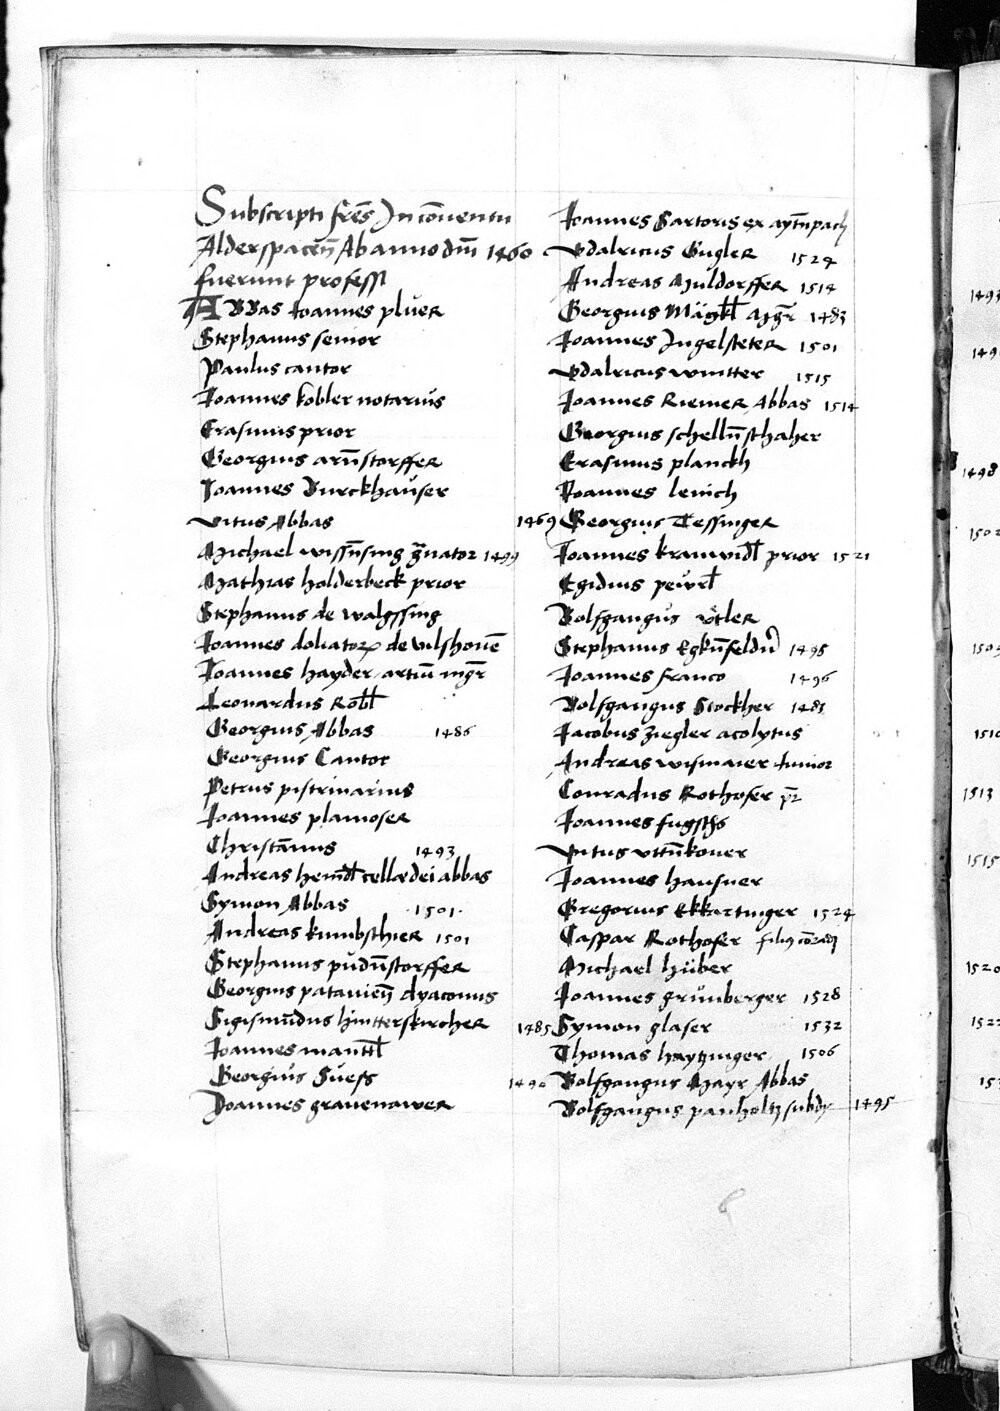 Subscripti fr̄es In cōnventu
Alderspacen̄ Ab anno dn̄i 1460
fuerunt professi
ABBas Joannes pluer
Stephanus senior
Paulus cantor
Joannes kobler notarius
Erasmus prior
Georgius arn̄storffer
Joannes Burckhauser
Vitus Abbas 1469
Michael wissn̄sing 1499
Mathias holderbeck prior
Stephanus de walgssing
Joannes doliator de vilshouē
Joannes hayder artiū mgr̄
Leonardus Robl
Georgius Abbas 1486
Georgius Cantor
Petrus pistrinarius
Joannes plamoser
Christān̄us 1493
Andreas abbas
Symon Abbas 1501
Andreas kumbsthier 1501
Stephanus pudn̄storffer
Georgius patavien̄ dyaconus
Sigismūdus hintterskircher 1485
Joannes mantl
Georgius Suess 1490
Joannes gravenawer
Joannes Sartoris ex aytn̄pach
Vdalricus Gugler 1524
Andreas Muldorffer 1514
Georgius Mägkl Mgr̄ 1483
Joannes Ingelsteter 1501
Vdalricus wintter 1515
Joannes Riemer Abbas 1514
Georgius schelln̄sthaher
Erasmus planckh
Joannes lenich
Georgius Tessinger
Joannes kranwidl prior 1521
Egidius pewrl
Wolfgangus vtler
Stephanus 1498
Joannes franco 1496
Wolfgangus Stockher 1483
Jacobus ziegler acolytus
Andreas wismaier iunior
Conradus Rothofer pr̄
Joannes
Vitus vttn̄kover
Joannes hausner
Gregorius Ekkartinger 1524
Caspar Rothofer filius cōradj
Michael hüber
Joannes grünberger 1528
Symon glaser 1532
Thomas haytzinger 1506
Wolfgangus Mayr Abbas
Wolfgangus panholtz subdy 1495
1493
149
1498
150
150
1510
1513
1515
1520
152
15